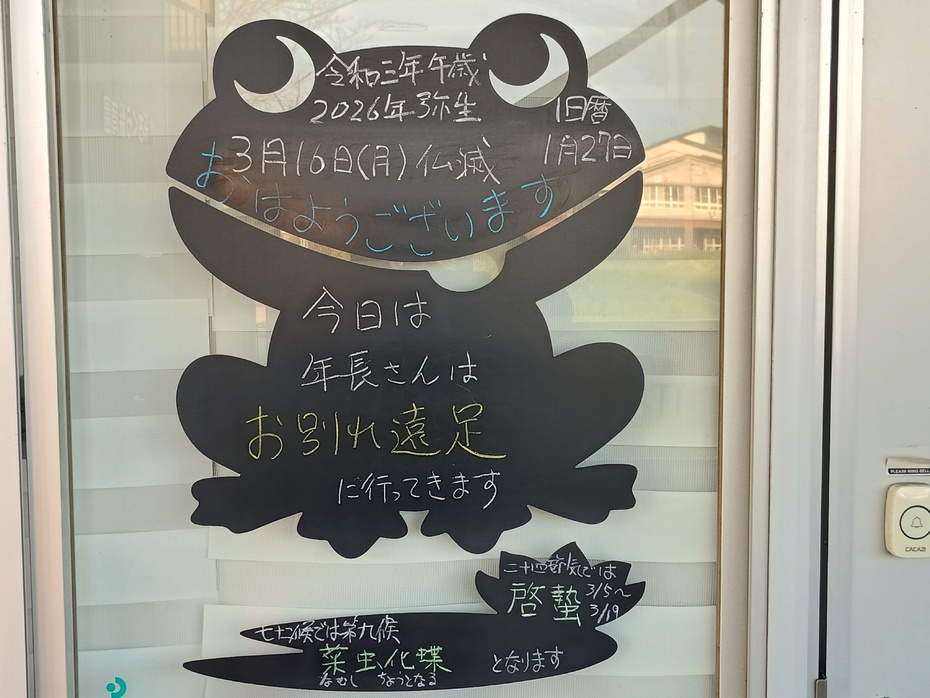 令和三年午歳
2026年弥生
旧暦
1月27日
3月16日(月)仏滅
おはようございます
今日は
年長さんは
お別れ遠足
に行ってきます
二十四節気では
啓蟄 3/5〜
3/19
七十二候では第九候
菜虫化蝶 となります
なむし ちょうとなる
PLEASE RING BELL
CACAZI